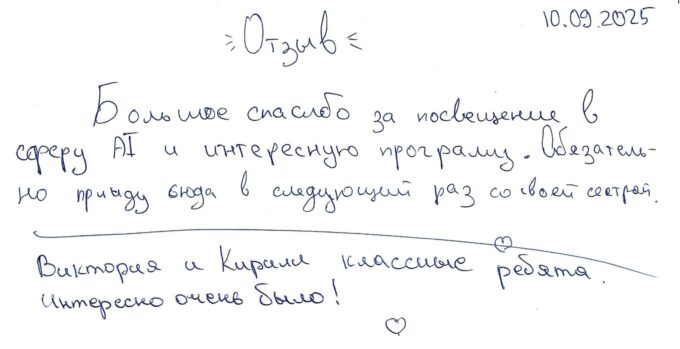 10.09.2025
Отзыв
Большое спасибо за посвещение в
сферу AI и интересную программу. Обязатель-
но прийду сюда в следующий раз со своей сестрой.
Виктория и Кирилл классные ребята.
Интересно очень было!